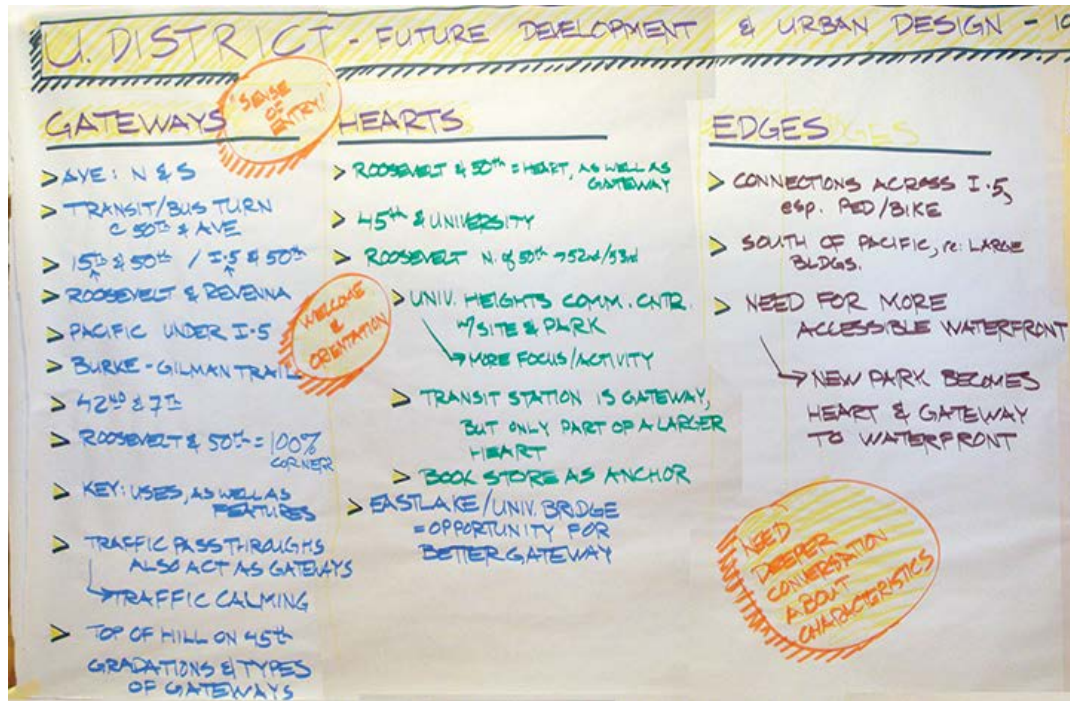 U. DISTRICT - FUTURE DEVELOPMENT & URBAN DESIGN - 10
GATEWAYS
"SENSE
OF
ENTRY!"
> AVE: N & S
> TRANSIT/BUS TURN
@ 50TH & AVE
> 15TH & 50TH / I-5 & 50TH
> ROOSEVELT & REVENNA
> PACIFIC UNDER I-5
> BURKE-GILMAN TRAIL
> 42ND & 7TH
> ROOSEVELT & 50TH = 100%
CORNER
> KEY: USES, AS WELL AS
FEATURES
> TRAFFIC PASS THROUGHS
ALSO ACT AS GATEWAYS
→ TRAFFIC CALMING
> TOP OF HILL ON 45TH
GRADATIONS & TYPES
OF GATEWAYS
HEARTS
> ROOSEVELT & 50TH = HEART, AS WELL AS
GATEWAY
> 45TH & UNIVERSITY
> ROOSEVELT N. of 50TH → 52nd/53rd
WELCOME
&
ORIENTATION
> UNIV. HEIGHTS COMM. CNTR.
w/SITE & PARK
→ MORE FOCUS/ACTIVITY
> TRANSIT STATION IS GATEWAY,
BUT ONLY PART OF A LARGER
HEART
> BOOK STORE AS ANCHOR
> EASTLAKE/UNIV. BRIDGE
= OPPORTUNITY FOR
BETTER GATEWAY
EDGES
> CONNECTIONS ACROSS I-5,
esp. PED/BIKE
> SOUTH OF PACIFIC, re: LARGE
BLDGS.
> NEED FOR MORE
ACCESSIBLE WATERFRONT
→ NEW PARK BECOMES
HEART & GATEWAY
TO WATERFRONT
NEED
DEEPER
CONVERSATION
ABOUT
CHARACTERISTICS